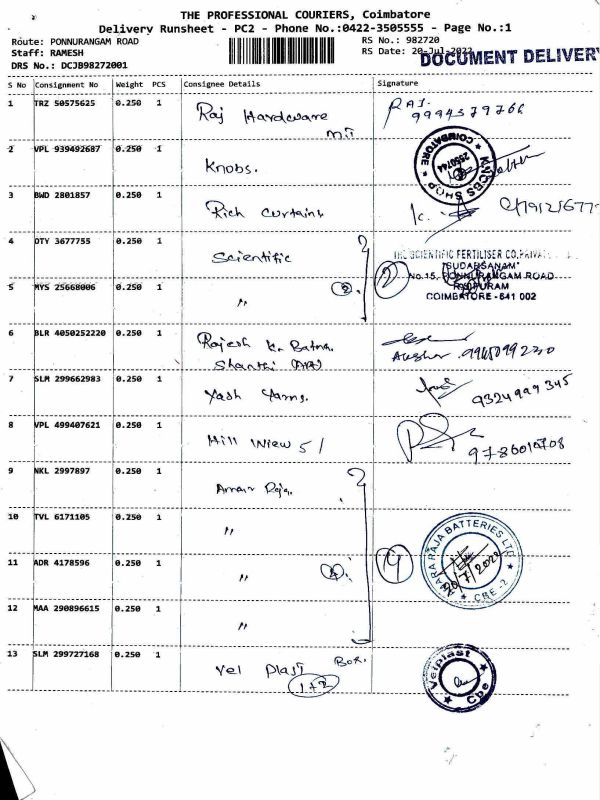 THE PROFESSIONAL COURIERS, Coimbatore
Delivery Runsheet - PC2 - Phone No.:0422-3505555 - Page No.:1
Route: PONNURANGAM ROAD
RS No.: 982720
Staff: RAMESH
RS Date: 20-Jul-2022
DOCUMENT DELIVERY
DRS No.: DCJB98272001
S No Consignment No Weight PCS Consignee Details Signature
1 TRZ 50575625 0.250 1 Raj Hardware RAJ.
2 VPL 939492687 0.250 1 Knobs.
COIMBATORE 2550744 KNOBS SHOP
3 BWD 2801857 0.250 1 Rich Curtains
4 DTY 3677755 0.250 1 Scientific
THE SCIENTIFIC FERTILISER CO.PRIVATE
"SUDARSANAM"
5 MYS 25668006 0.250 1 " 2 2
No.15, PONNURANGAM ROAD
R.S.PURAM
COIMBATORE - 641 002
6 BLR 4050252220 0.250 1 Rajesh K. Batna.
Shanthi
7 SLM 299662983 0.250 1 Yash Yarns. 9324999345
8 VPL 499407621 0.250 1 Mill 51 9786010708
9 NKL 2997897 0.250 1 Amar Raja.
10 TVL 6171105 0.250 1 "
11 ADR 4178596 0.250 1 " 4 4
AMARA RAJA BATTERIES LTD CBE - 2
20/7/2022
12 MAA 290896615 0.250 1 "
13 SLM 299727168 0.250 1 Vel Plast Box.
1+2
Velplast Cbe